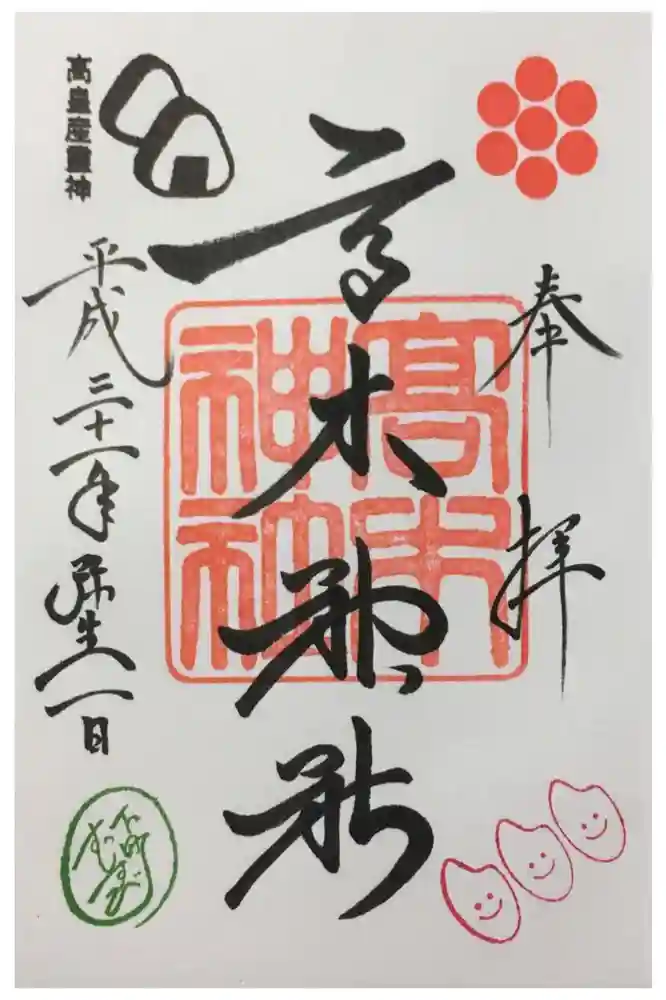 奉拝
高木神社
高木
神社
高皇産靈神
平成三十一年弥生